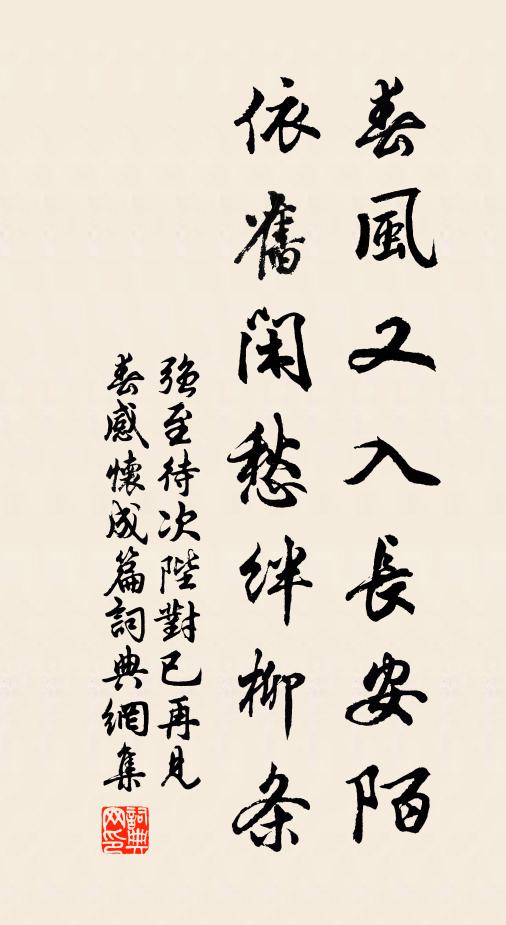 春風又入長安陌
依舊閑愁絆柳条
強至待次陛對已再見
春感懷成篇詞典網集
詞典网印